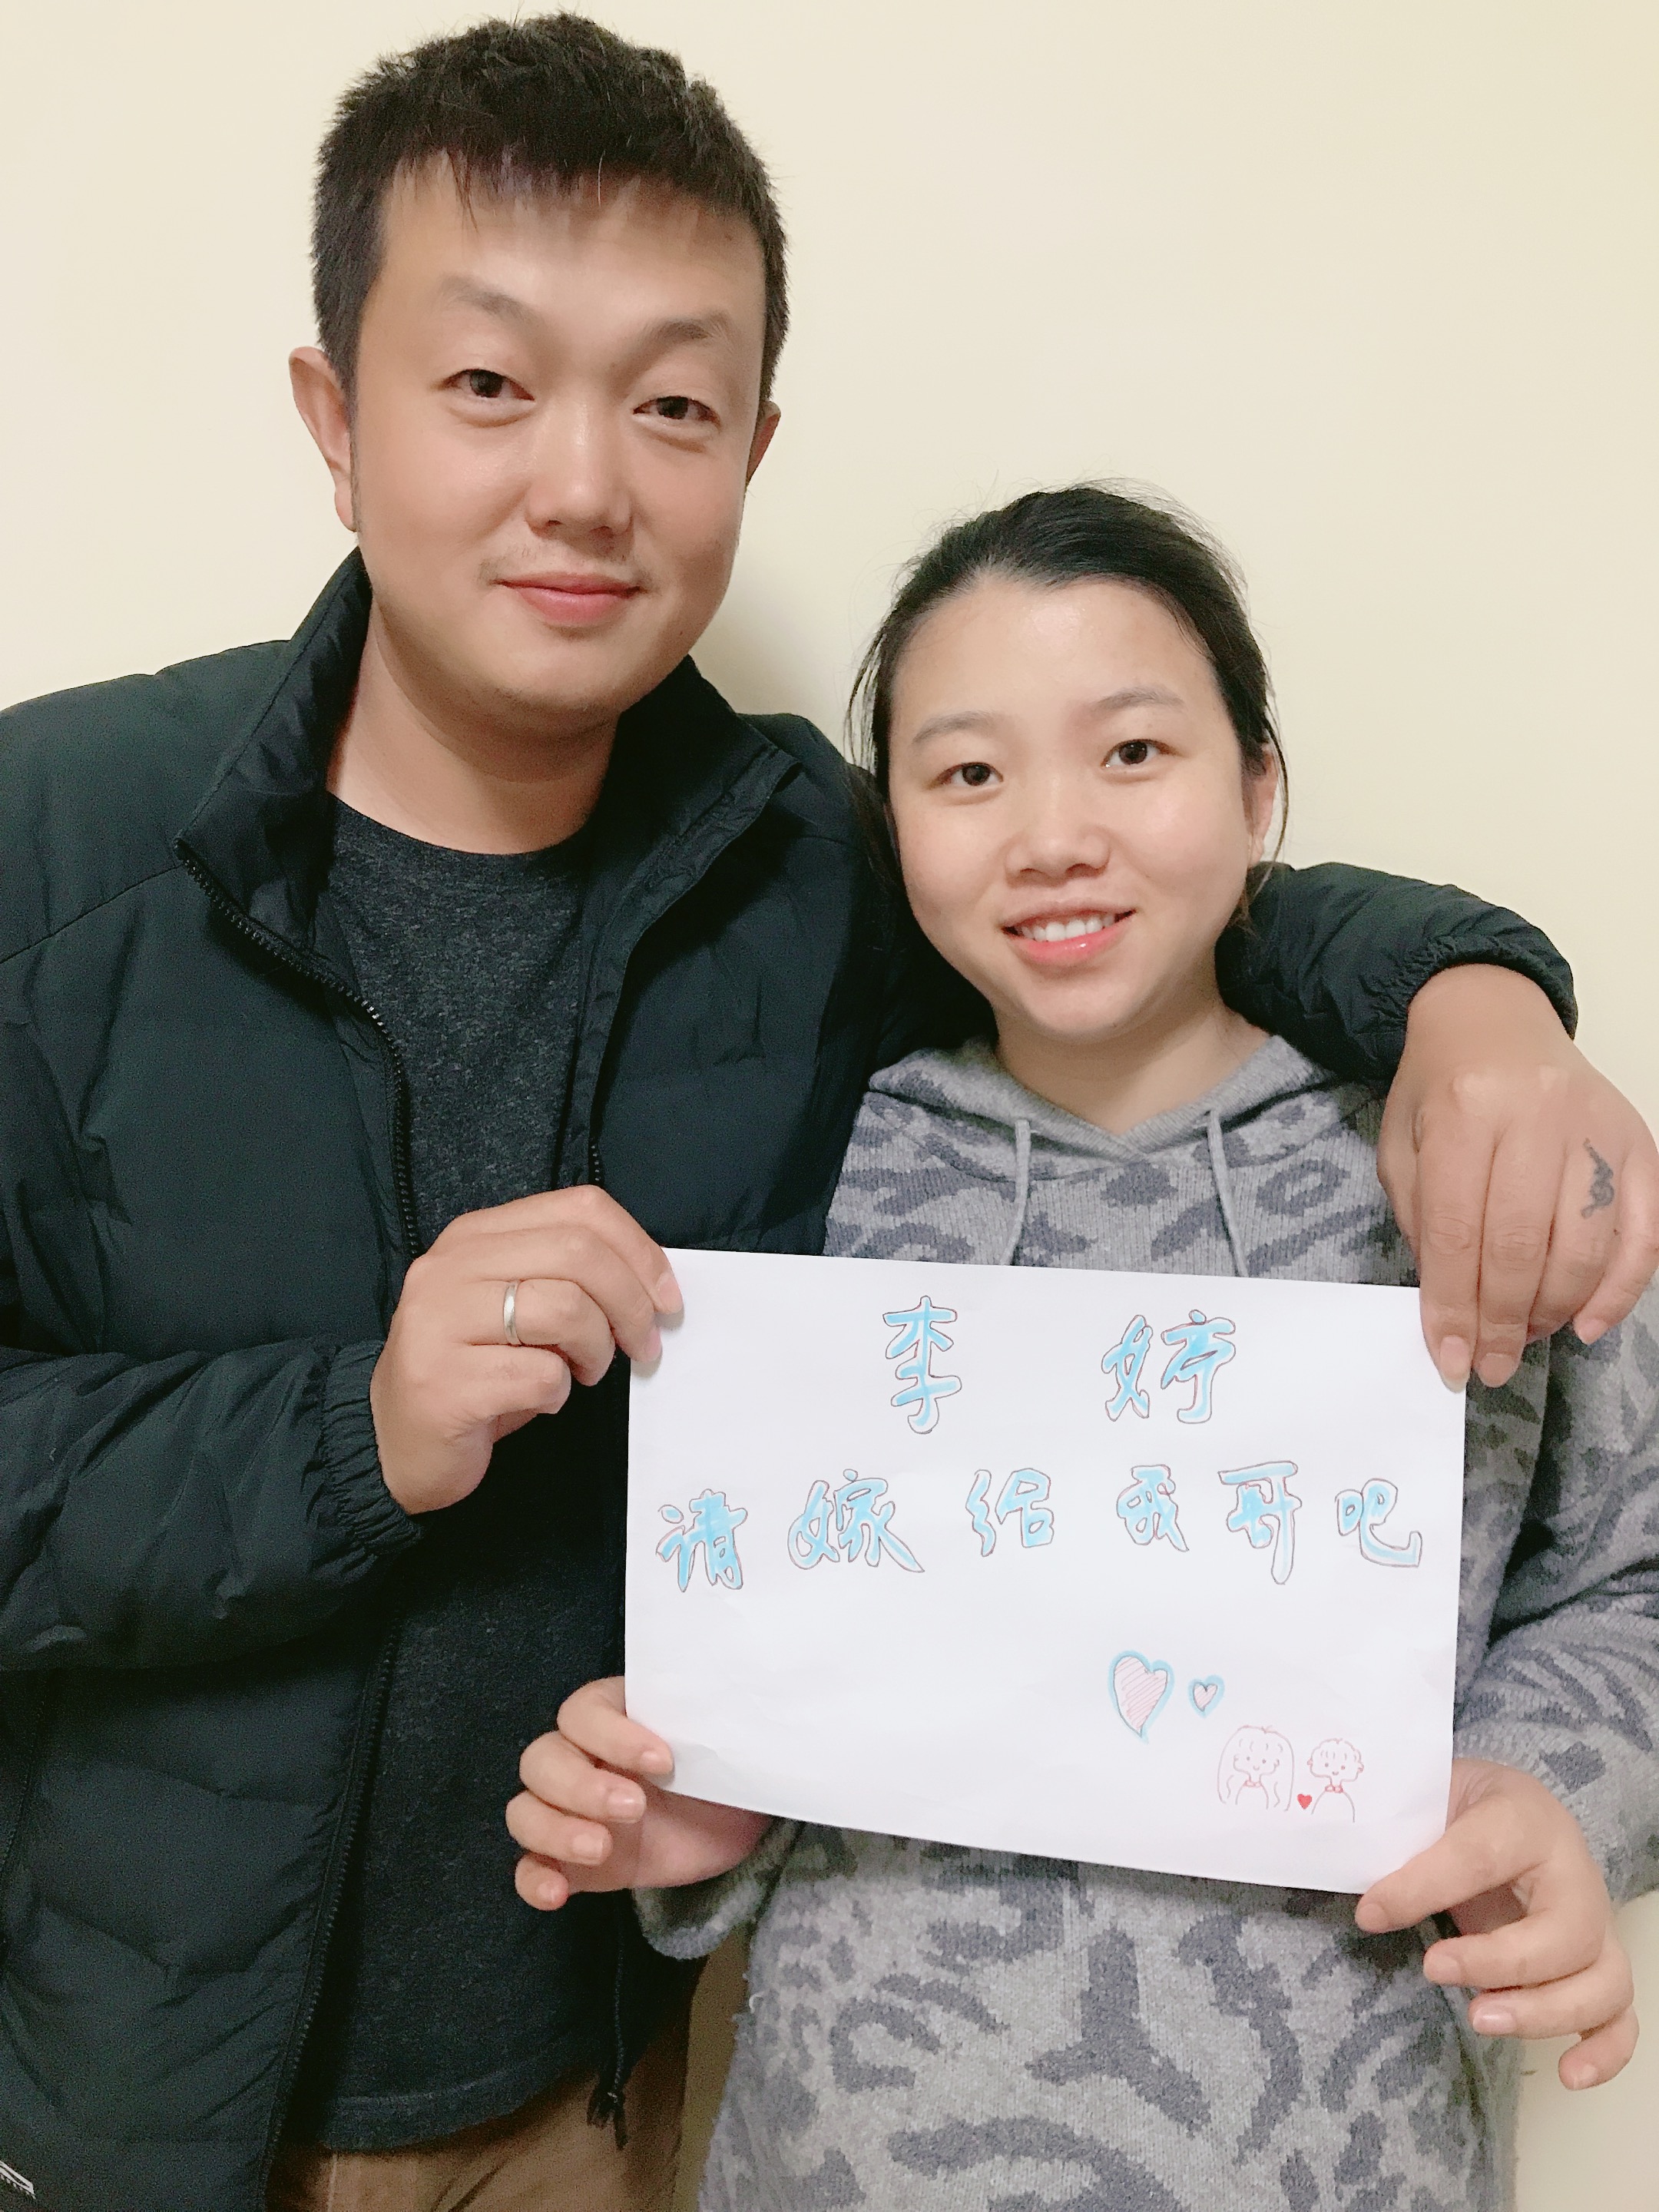 李婷
请嫁给我哥吧